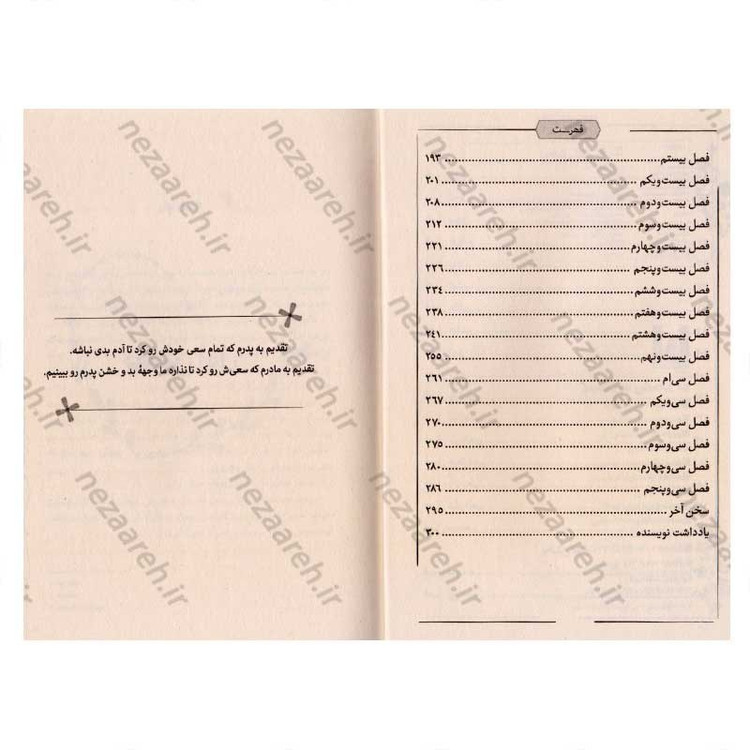 فهرست
فصل بیستم ۱۹۳
فصل بیست‌ویکم ۲۰۱
فصل بیست‌ودوم ۲۰۸
فصل بیست‌وسوم ۲۱۲
فصل بیست‌وچهارم ۲۲۱
فصل بیست‌وپنجم ۲۲۶
فصل بیست‌وششم ۲۳۴
فصل بیست‌وهفتم ۲۳۸
فصل بیست‌وهشتم ۲۴۱
فصل بیست‌ونهم ۲۵۵
فصل سی‌ام ۲۶۱
فصل سی‌ویکم ۲۶۷
فصل سی‌ودوم ۲۷۰
فصل سی‌وسوم ۲۷۵
فصل سی‌وچهارم ۲۸۰
فصل سی‌وپنجم ۲۸۶
سخن آخر ۲۹۵
یادداشت نویسنده ۳۰۰
تقدیم به پدرم که تمام سعی خودش رو کرد تا آدم بدی نباشه.
تقدیم به مادرم که سعی‌ش رو کرد تا نذاره ما وجههٔ بد و خشن پدرم رو ببینیم.
nezaareh.ir